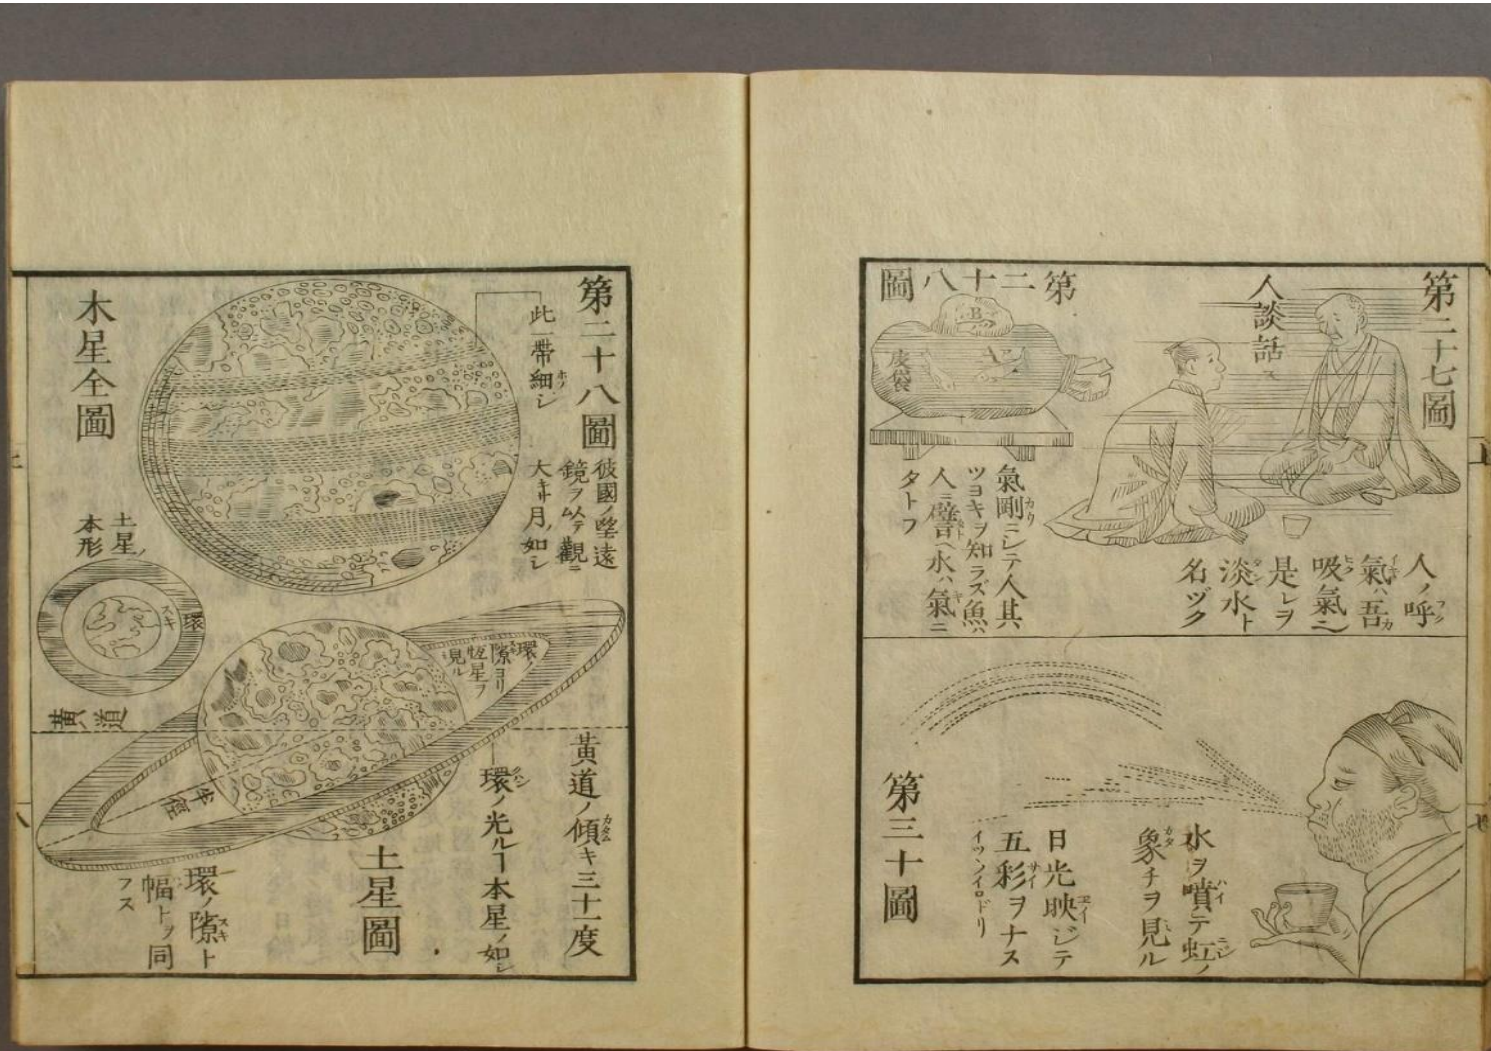 第二十七圖
人談話ス
人ノ呼
氣ハ吾
吸氣ニ
是レヲ
淡水ト
名ヅク
第二十八圖
B
A
皮袋
氣剛ニシテ人其
ツヨキヲ知ラズ魚ハ
人ニ譬ヘ水ハ氣ニ
タトフ
水ヲ噴テ虹ノ
象チヲ見ル
日光映ジテ
五彩ヲナス
イツヽイロドリ
第三十圖
第二十八圖
彼國ノ望遠
鏡ヲ以テ觀ニ
大キサ月ノ如シ
此一帶細シ
木星全圖
土星ノ
本形
環
スキ
環ノ
隙ヨリ
恆星ヲ
見ル
黃道
半徑
黃道ノ傾キ三十一度
環ノ光ルヿ本星ノ如シ
土星圖
環ノ隙ト
幅トヲ同
フス